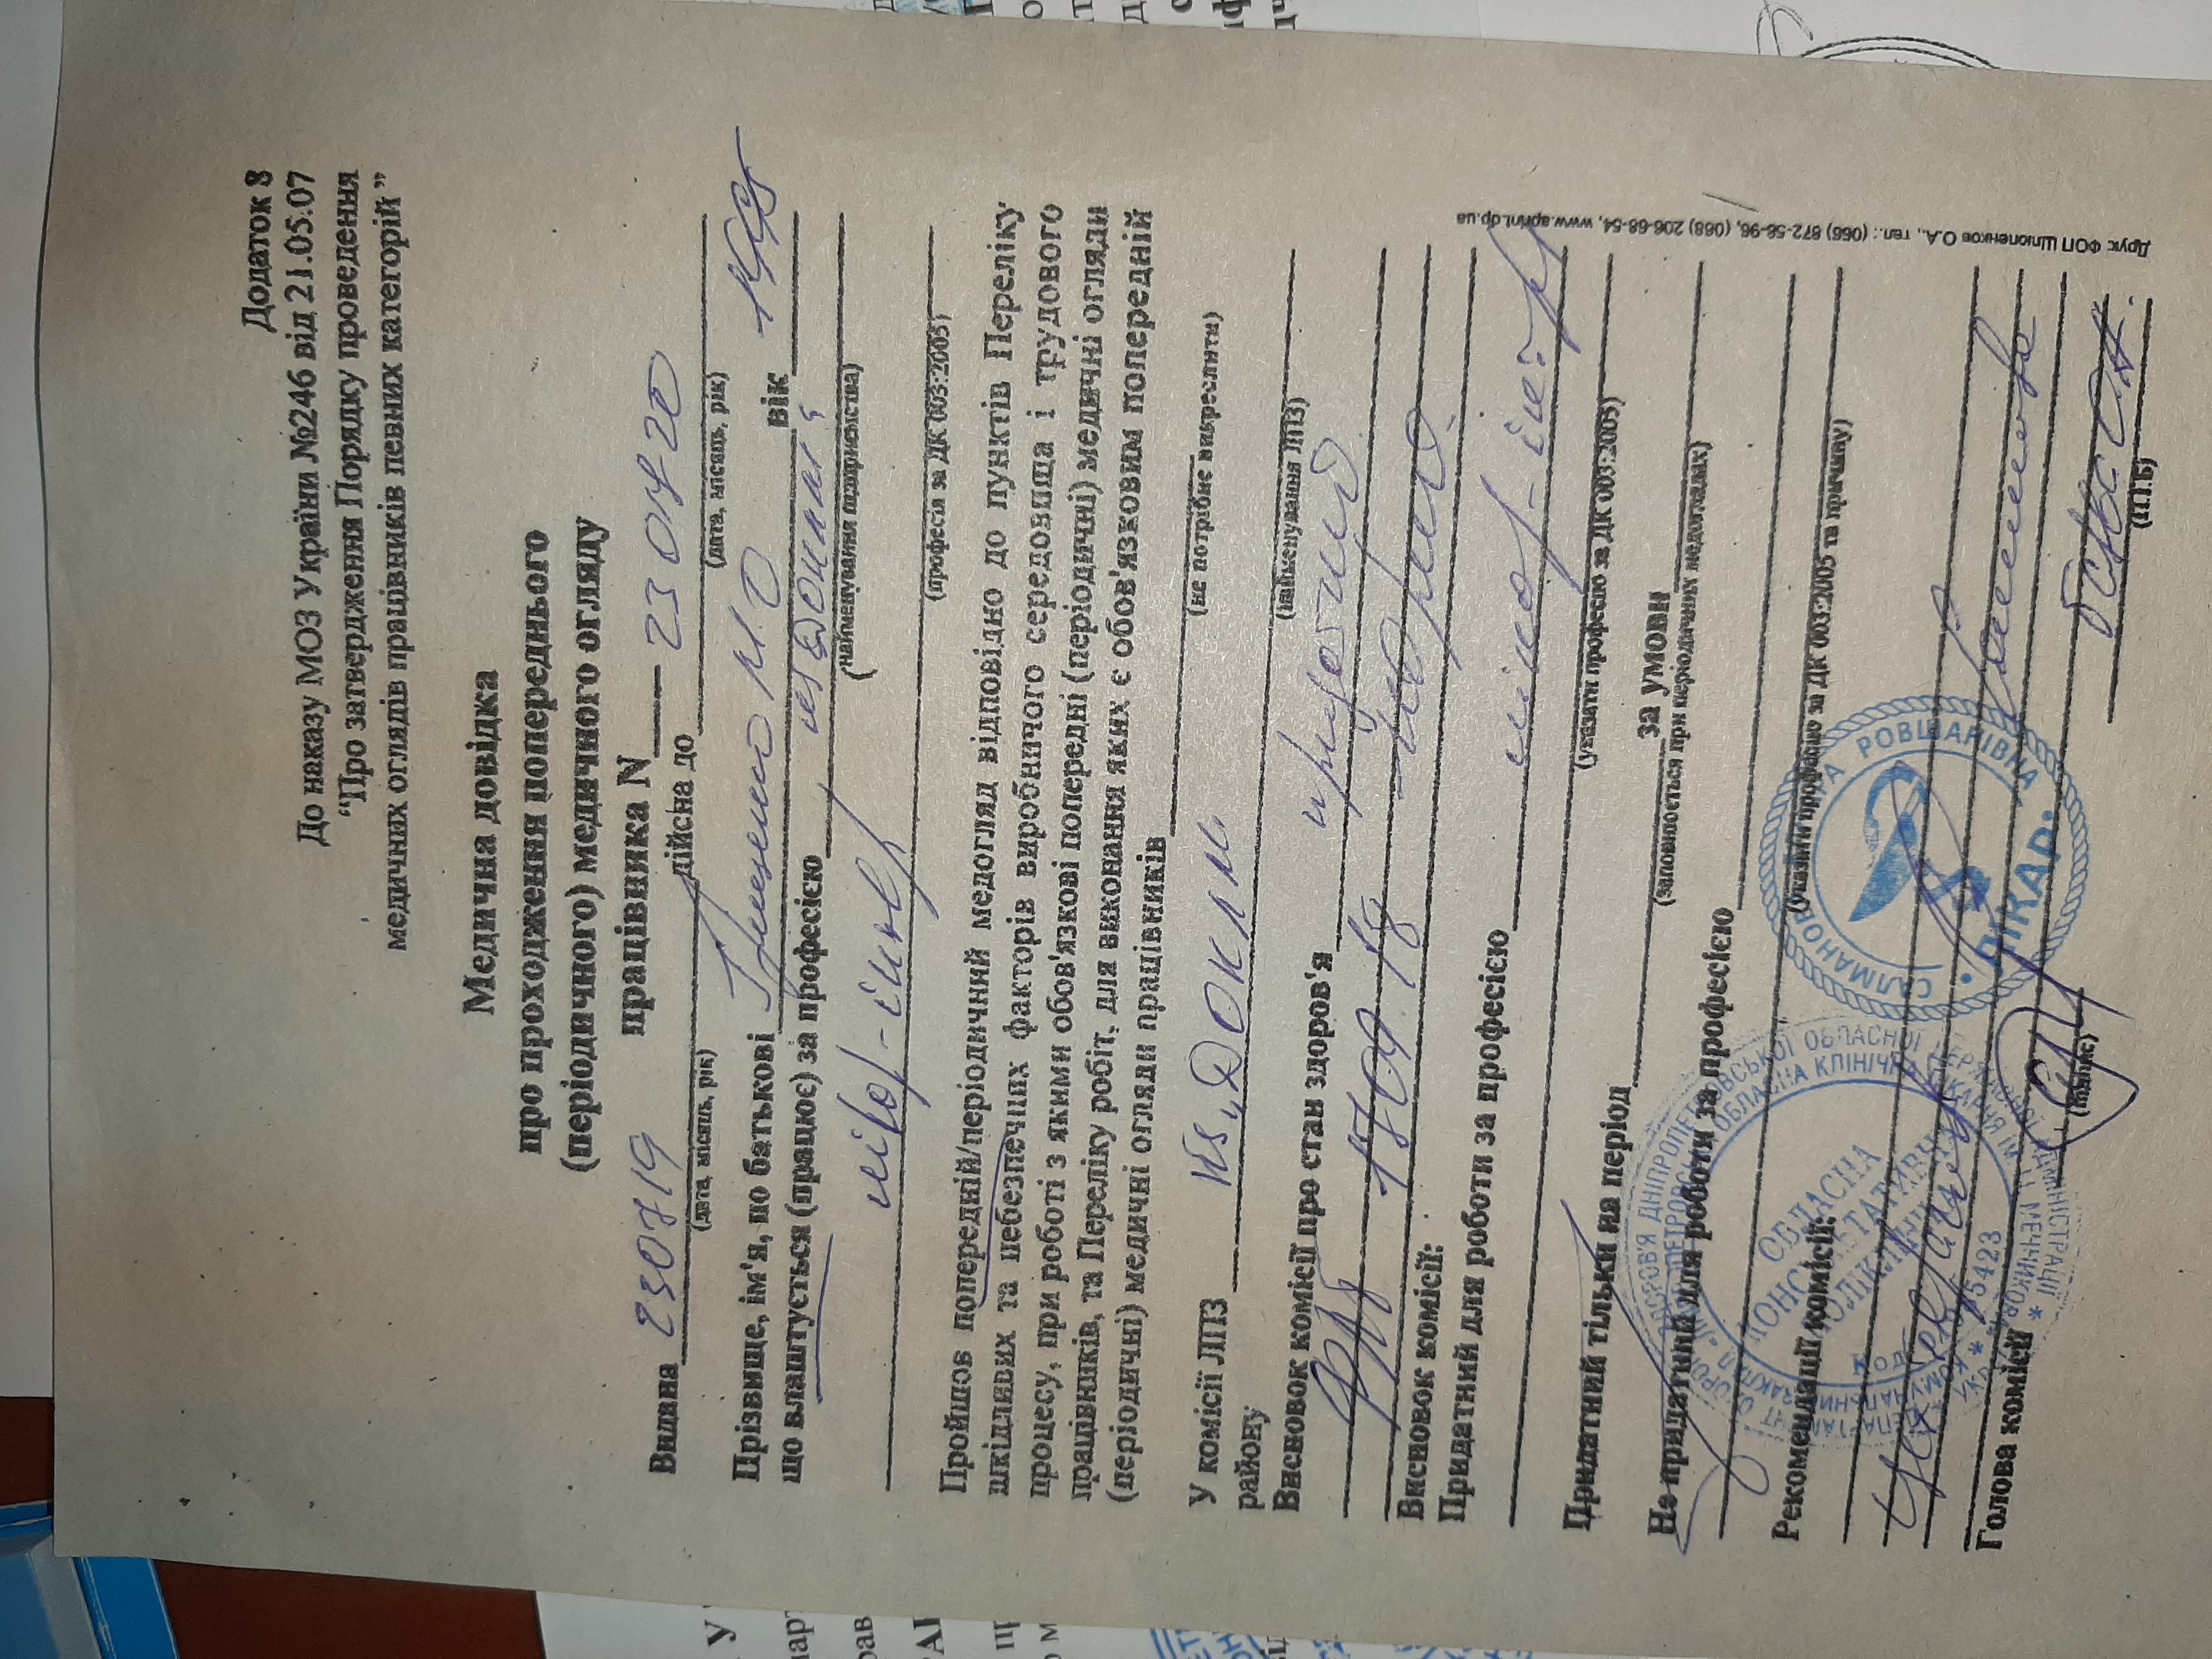 Додаток 8
До наказу МОЗ України №246 від 21.05.07
“Про затвердження Порядку проведення
медичних оглядів працівників певних категорій ”
Медична довідка
про проходження попереднього
(періодичного) медичного огляду
працівника N____
Видана 230719 дійсна до 230720
(дата, місяць, рік) (дата, місяць, рік)
Прізвище, ім'я, по батькові Грищенко М.О вік 1995
що влаштується (працює) за професією
(найменування підприємства)
лікар-інтерн
(професія за ДК 003:2005)
Пройшов попередній/періодичний медогляд відповідно до пунктів Переліку
шкідливих та небезпечних факторів виробничого середовища і трудового
процесу, при роботі з якими обов'язкові попередні (періодичні) медичні огляди
працівників, та Переліку робіт, для виконання яких є обов'язковим попередній
(періодичні) медичні огляди працівників
(не потрібне викреслити)
У комісії ЛПЗ КЗ „ДОКЛМ"
району
(найменування ЛПЗ)
Висновок комісії про стан здоров'я придатний
17 09 18 норма
Висновок комісії:
Придатний для роботи за професією лікар-інтерн
(указати професію за ДК 003:2005)
Придатний тільки на період за умови
(заповнюється при періодичних медоглядах)
Не придатний для роботи за професією
(указати професію за ДК 003:2005 та причину)
Рекомендації комісії:
Голова комісії
(підпис)
(П.І.Б)
ОБЛАСНА
КОНСУЛЬТАТИВНА
ПОЛІКЛІНІКА
ЛІКАР
Друк: ФОП Шлюпенков О.А., тел.: (066) 872-58-96, (068) 206-68-54, www.aprint.dp.ua